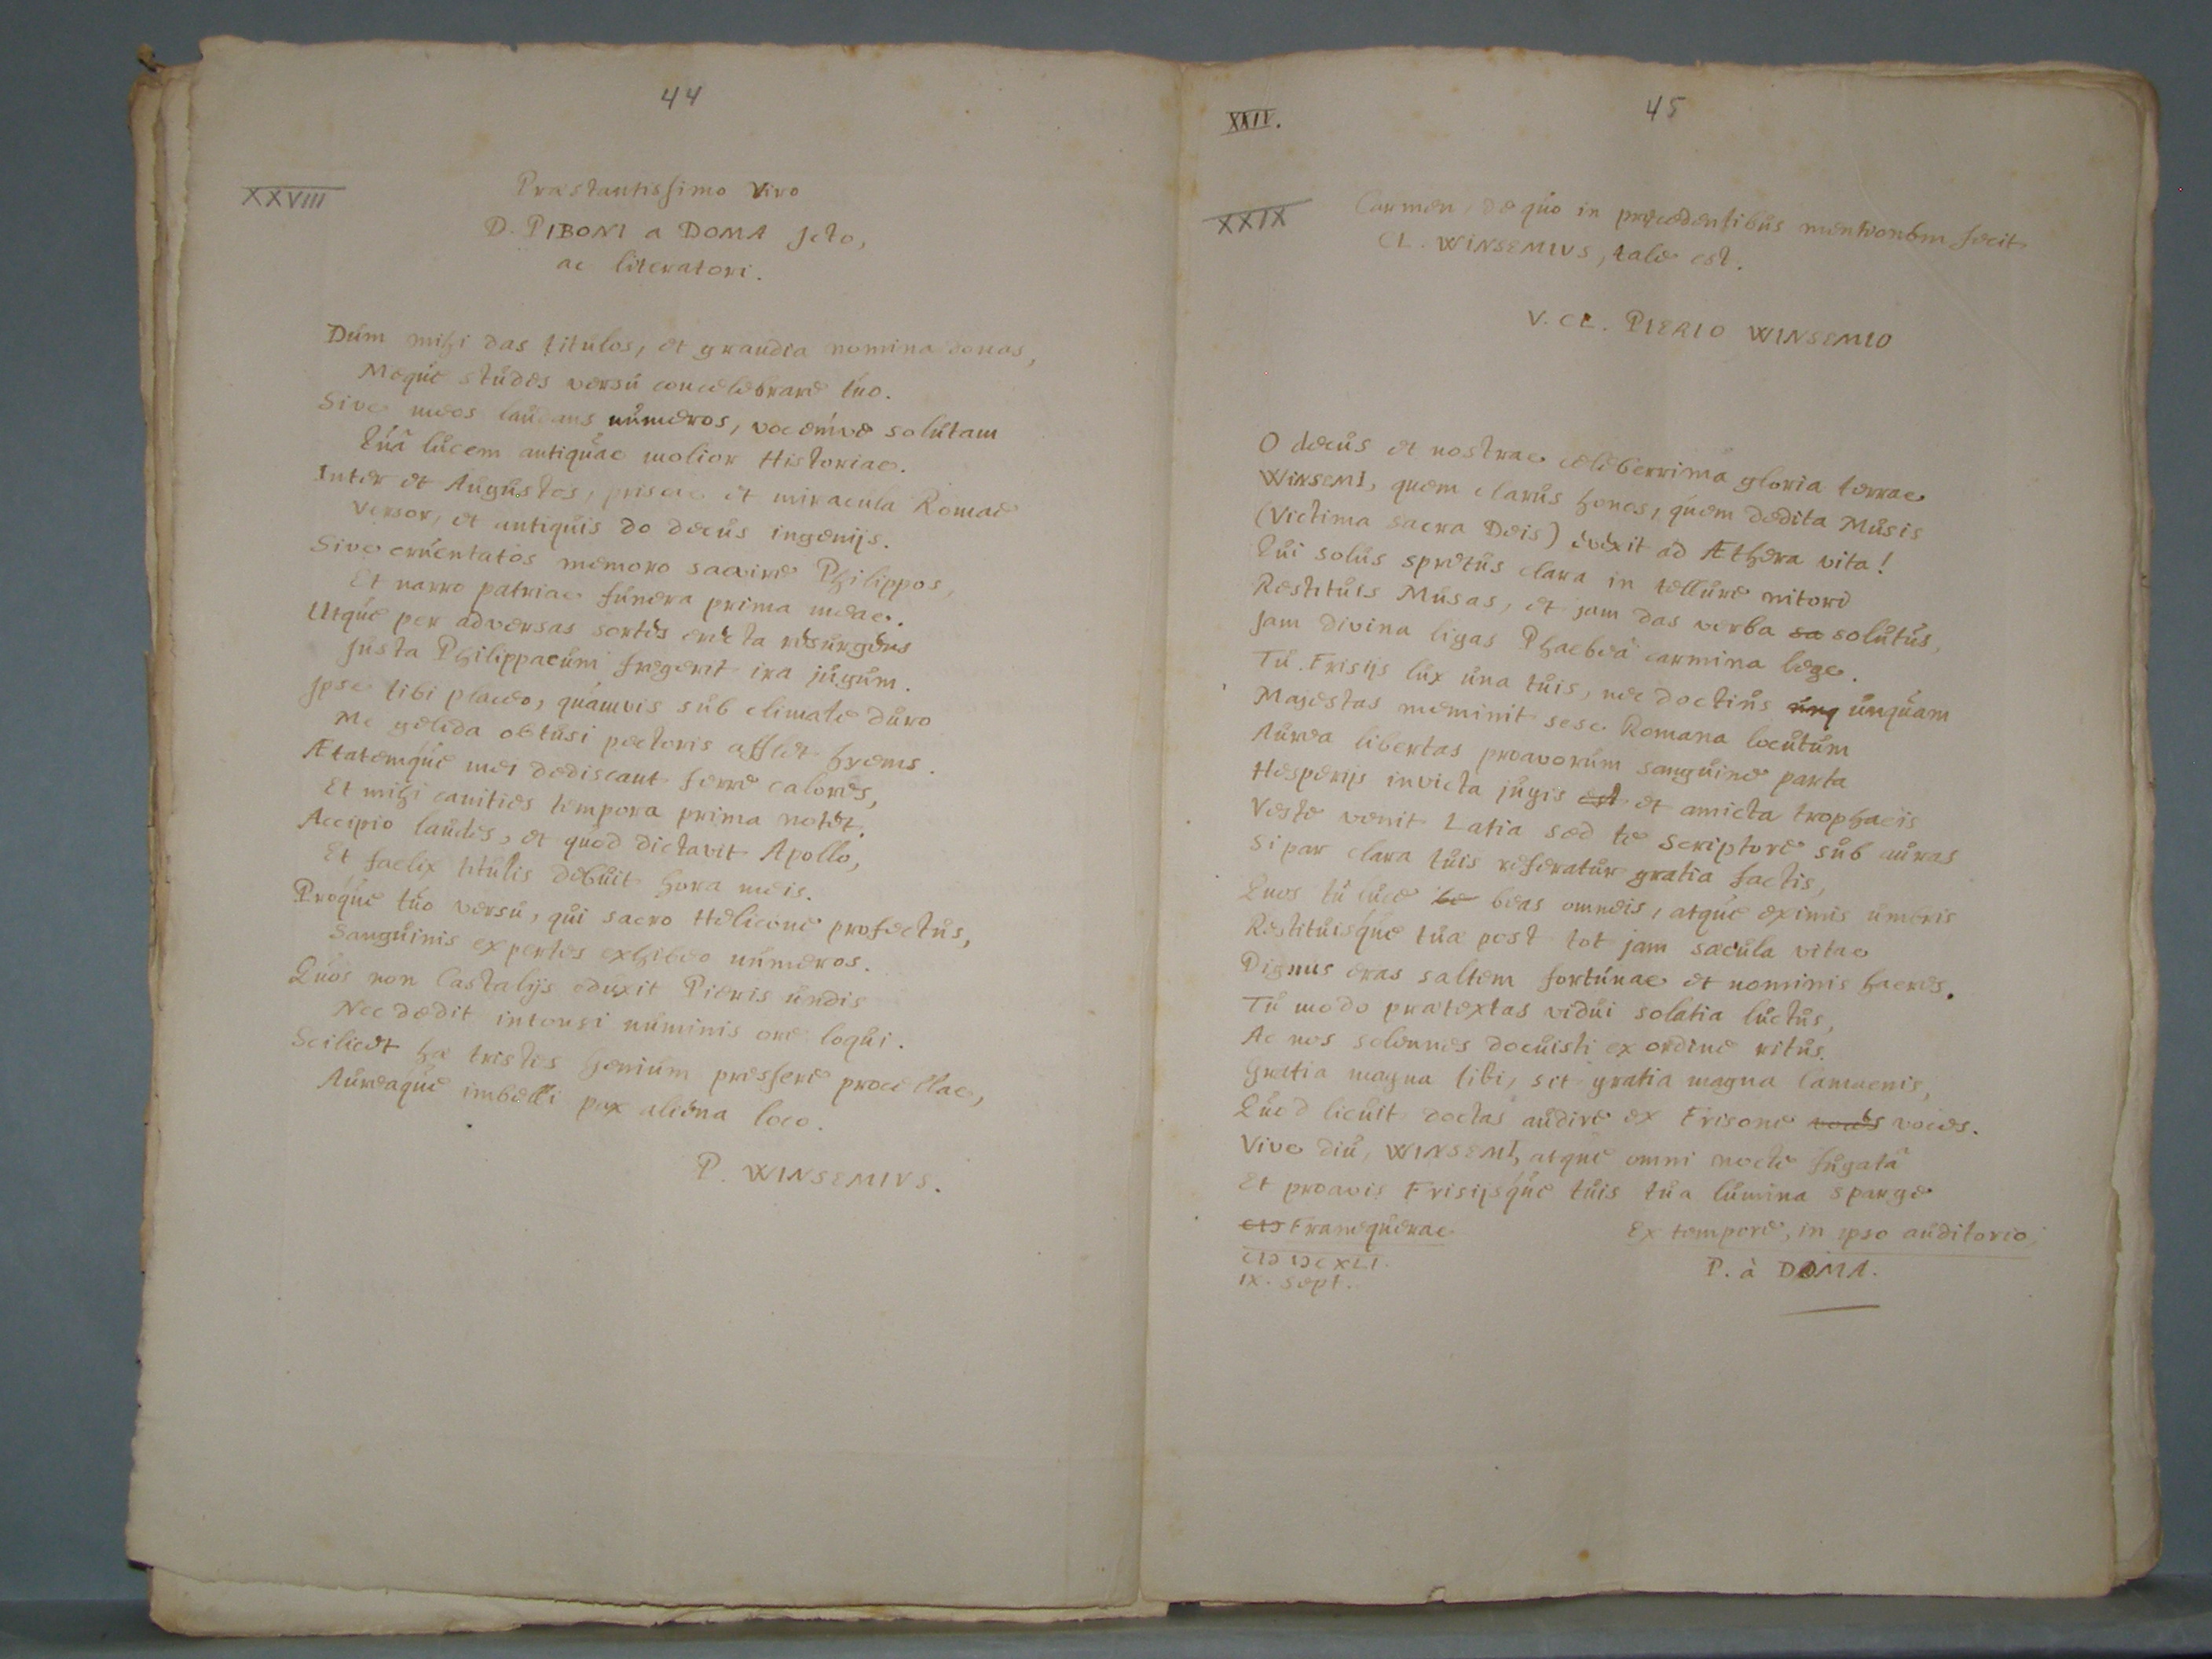 44
XXVIII
Praestantissimo Viro
D. PIBONI a DOMA Jcto,
ac literatori.
Dum mihi das titulos, et grandia nomina donas,
Meque studes versu concelebrare tuo.
Sive meos laudans numeros, vocemve solutam
Quâ lucem antiquae molior Historiae.
Inter et Augustos, priscae et miracula Romae
Versor, et antiquis do decus ingenijs.
Sive cruentatos memoro saevire Philippos,
Et narro patriae funera prima meae.
Utque per adversas sortes erecta resurgens
Justa Philippaeum fregerit ira jugum.
Ipse tibi placeo, quamvis sub climate duro
Me gelida obtusi pectoris afflet hyems.
Ætatemque mei dediscant ferre calores,
Et mihi canities tempora prima notet.
Accipio laudes, et quod dictavit Apollo,
Et faelix titulis debuit hora meis.
Proque tuo versu, qui sacro Helicone profectus,
Sanguinis expertes exhibeo numeros.
Quos non Castalijs eduxit Pieris undis
Nec dedit intonsi numinis ore loqui.
Scilicet hae tristes Genium pressere procellae,
Aureaque imbelli pax aliena loco.
P. WINSEMIVS.
45
XXIV.
XXIX
Carmen, de quo in praecedentibus mentionem fecit
CL. WINSEMIVS, tale est.
V. CL. PIERIO WINSEMIO
O decus et nostrae celeberrima gloria terrae
WINSEMI, quem clarus honos, quem dedita Musis
(Victima sacra Deis) evexit ad Æthera vita!
Qui solus spretus clara in tellure nitore
Restituis Musas, et jam das verba sa solutus,
Jam divina ligas Phaebeâ carmina lege.
Tu Frisijs lux una tuis, nec doctius unq unquam
Majestas meminit sese Romana locutum
Aurea libertas proavorum sanguine parta
Hesperijs invicta jugis est et amicta trophaeis
Veste venit Latia sed te scriptore sub auras
Si par clara tuis referatur gratia factis,
Quos tu luce be beas omneis, atque eximis umbris
Restituisque tuae post tot jam saecula vitae
Dignus eras saltem fortunae et nominis haeres.
Tu modo praetextas vidui solatia luctus,
Ac nos solennes docuisti ex ordine ritus.
Gratia magna tibi, sit gratia magna Camaenis,
Quod licuit doctas audire ex Frisone voces voces.
Vive diu, WINSEMI, atque omni nocte fugatâ
Et proavis Frisijsque tuis tua lumina sparge
CIƆ Franequerae
CIƆ IƆCXLI.
IX. Sept.
Ex tempore, in ipso auditorio,
P. à DOMA.